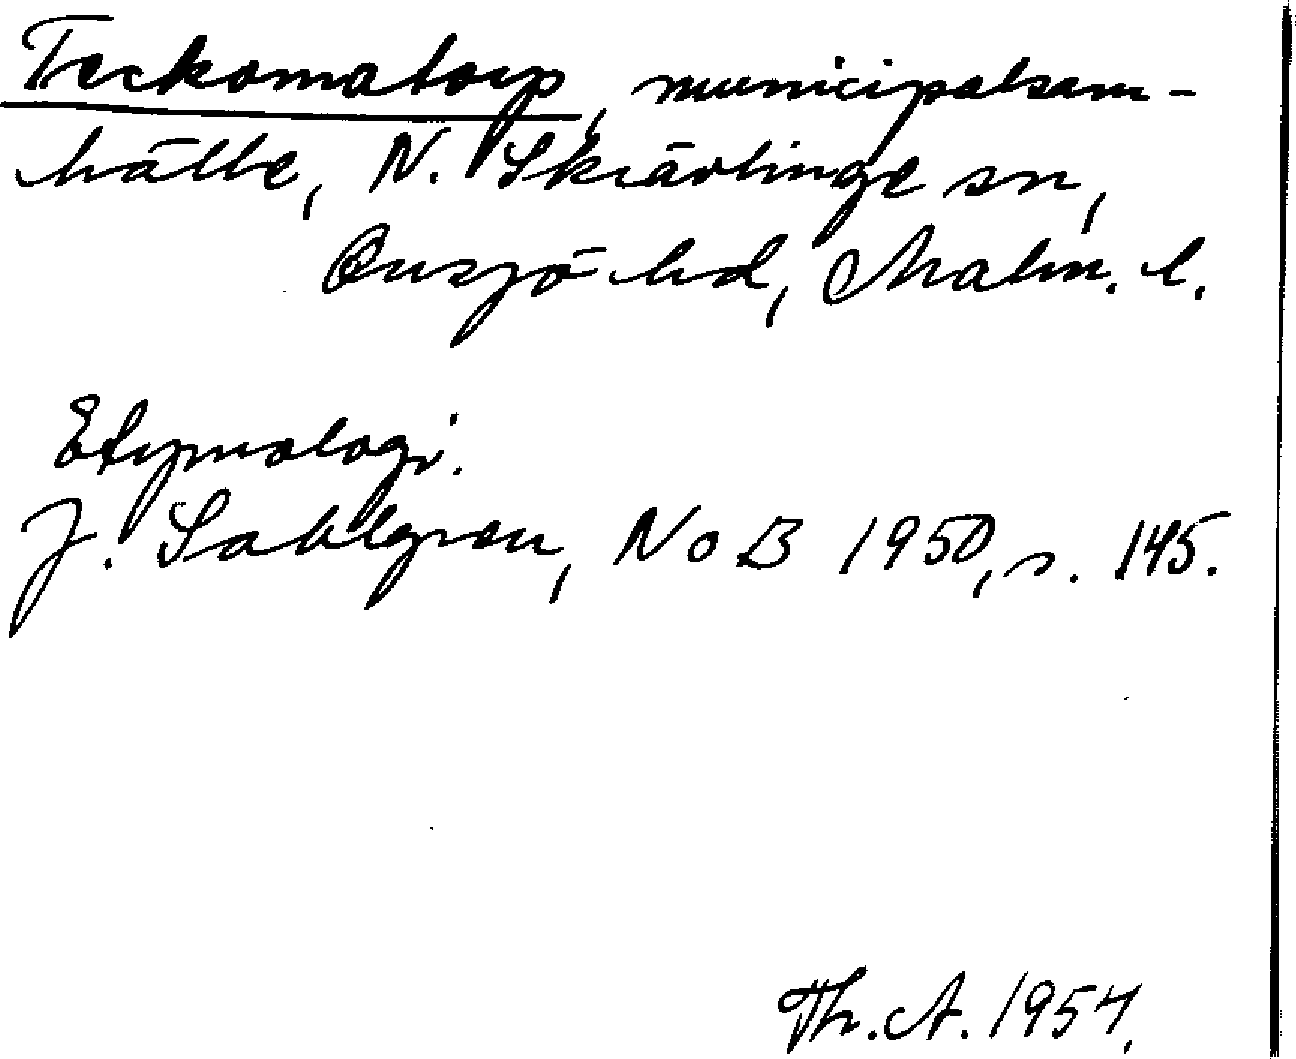 Teckomatorp, municipalsam-
hälle, N. Skrävlinge sn,
Onsjö hd, Malm. l.
Etymologi.
J. Sahlgren, NoB 1950, s. 145.
Th. A. 1954.